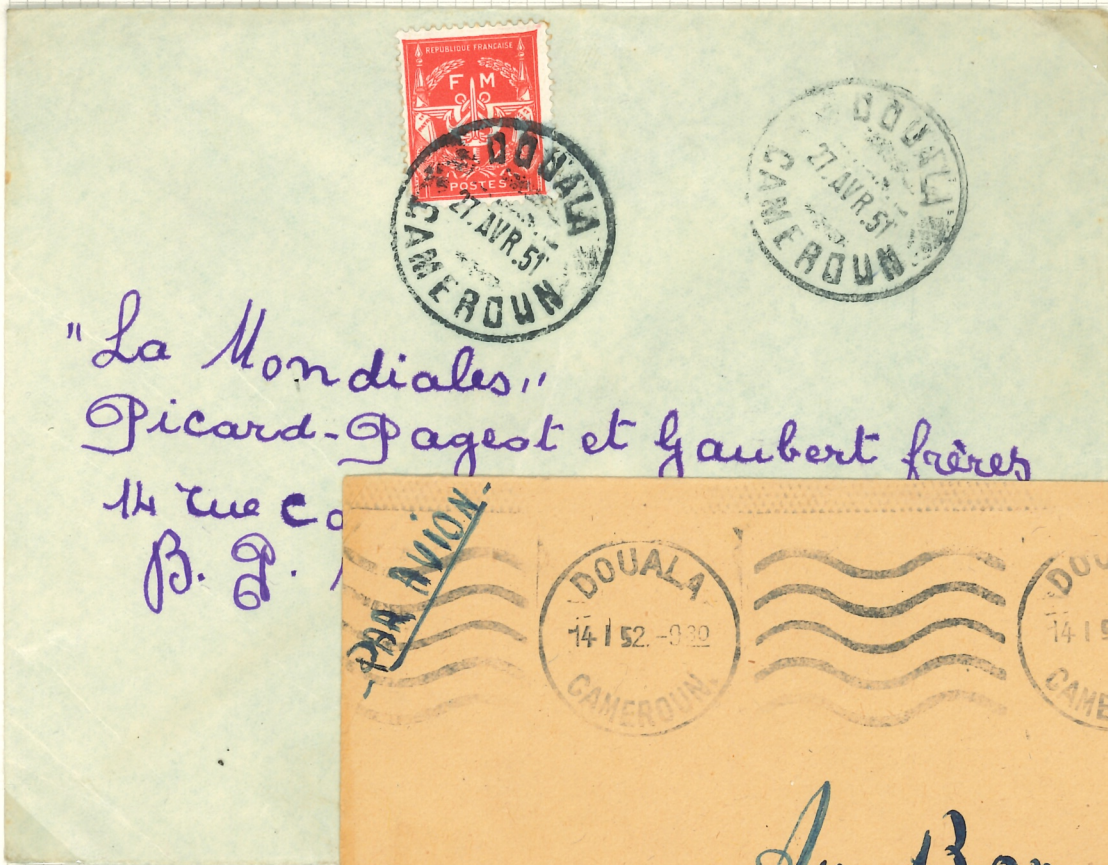 REPUBLIQUE FRANÇAISE
F M
POSTES
DOUALA
27. AVR. 51
CAMEROUN
DOUALA
27. AVR. 51
CAMEROUN
"La Mondiales"
Picard-Pageot et Gaubert frères
14 rue Co
B. P.
-PAR AVION-
DOUALA
14 I 52.-9 30
CAMEROUN
DOU
14 I 5
CAME